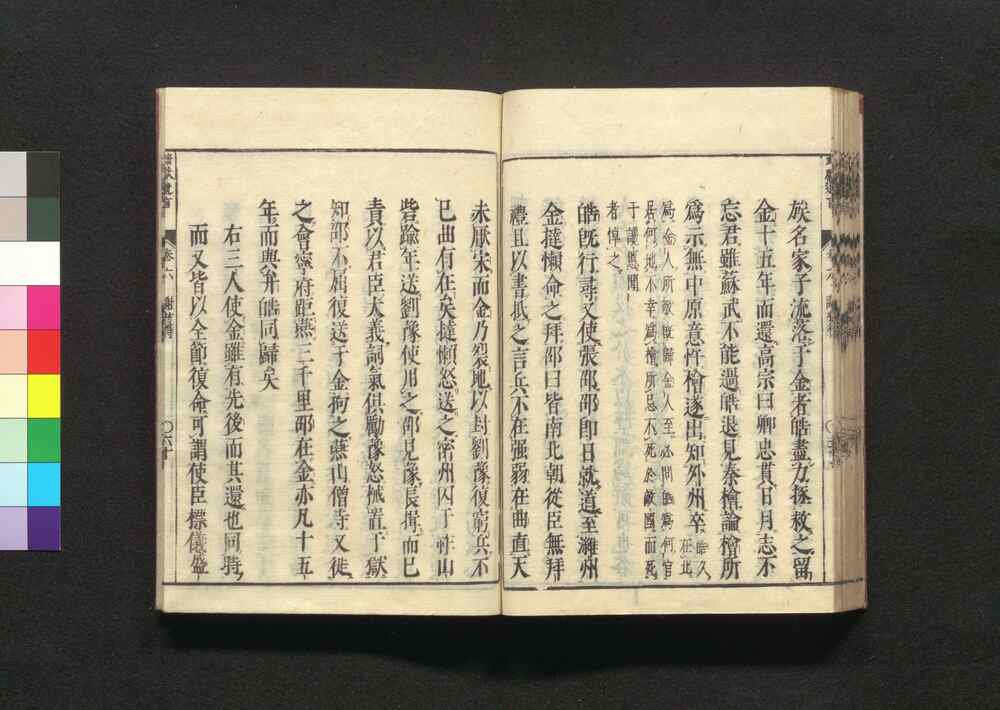 族名家子流落于金者皓盡力拯救之留
金十五年而還高宗曰卿忠貫日月志不
忘君雖蘇武不能過皓退見秦檜論檜所
爲示無中原意忤檜遂出知外州卒皓久在北
爲金人所敬
居何地不幸爲檜所忌不死於敵國而死
于讒慝聞
者悼之
皓既行尋又使張邵邵即日就道至濰州
金撻懶命之拜邵曰皆南北朝從臣無拜
禮且以書抵之言兵不在强弱在曲直天
未厭宋而金乃裂地以封劉豫復窮兵不
已曲有在矣撻懶怒送之密州囚于柞山
砦踰年送劉豫使用之邵見豫長揖而已
責以君臣大義詞氣俱勵豫怒械置于獄
知邵不屈復送于金拘之燕山僧寺又徙
之會寧府距燕三千里邵在金亦凡十五
年而與弁皓同歸矣
右三人使金雖有先後而其還也同時
而又皆以全節復命可謂使臣標儀盛
卷六
〇六十